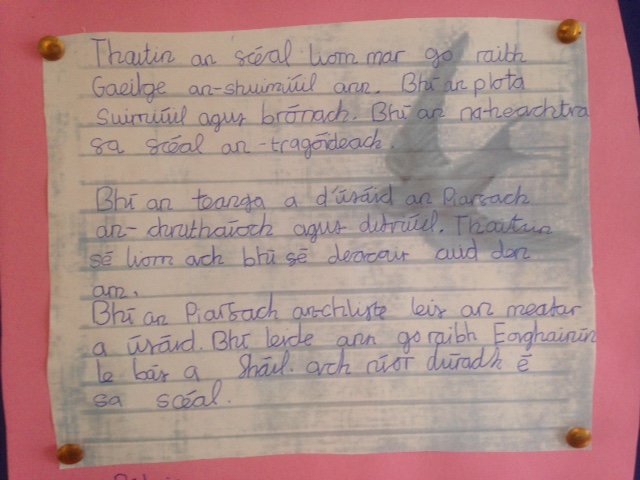 Thaitin an scéal liom mar go raibh
Gaeilge an-shuimiúil ann. Bhí an plota
suimiúil agus brónach. Bhí an n-heachtra
sa scéal an-tragóideach.
Bhí an teanga a d'úsáid an Piarsach
an-chruthaíoch agus disriúil. Thaitin
sé liom ach bhí sé deacair cuid den
am.
Bhí an Piarsach an-chliste leis an meafar
a úsáid. Bhí leide ann go raibh Eoghainín
le bás a fháil. ach níor dúradh é
sa scéal.